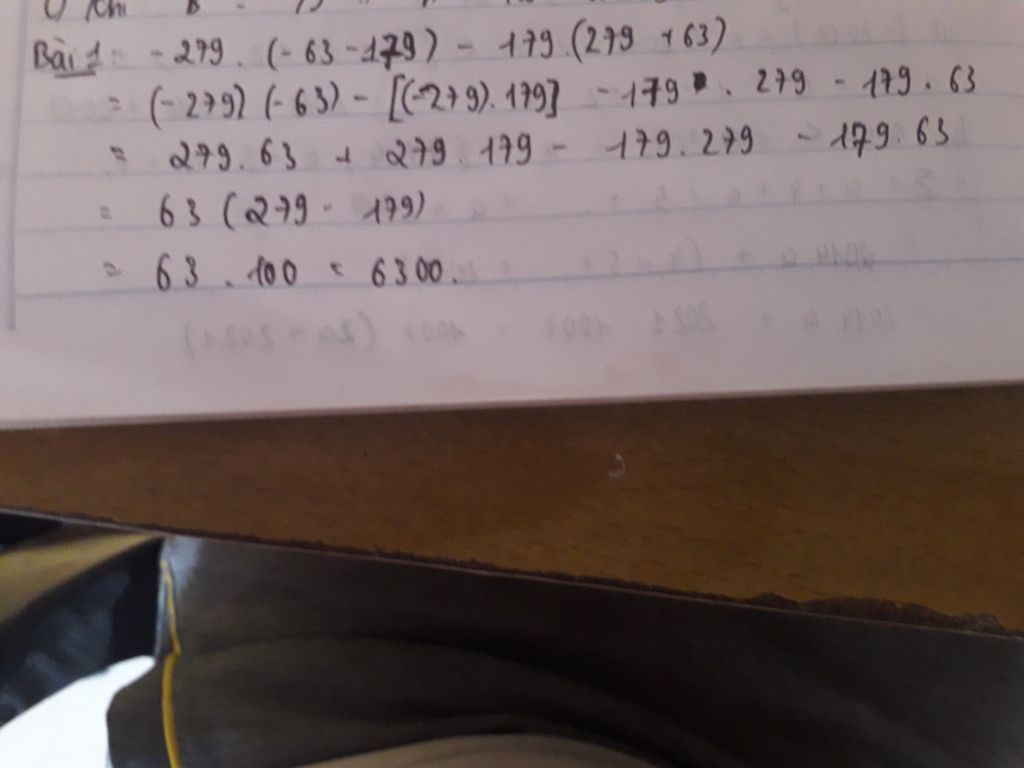 Bài 1: -279 . (-63 -179) - 179.(279 +63)
= (-279) (-63) - [(-279).179] -179 . 279 - 179 . 63
= 279.63 + 279.179 - 179.279 - 179.63
= 63 (279 - 179)
= 63 . 100 = 6300.